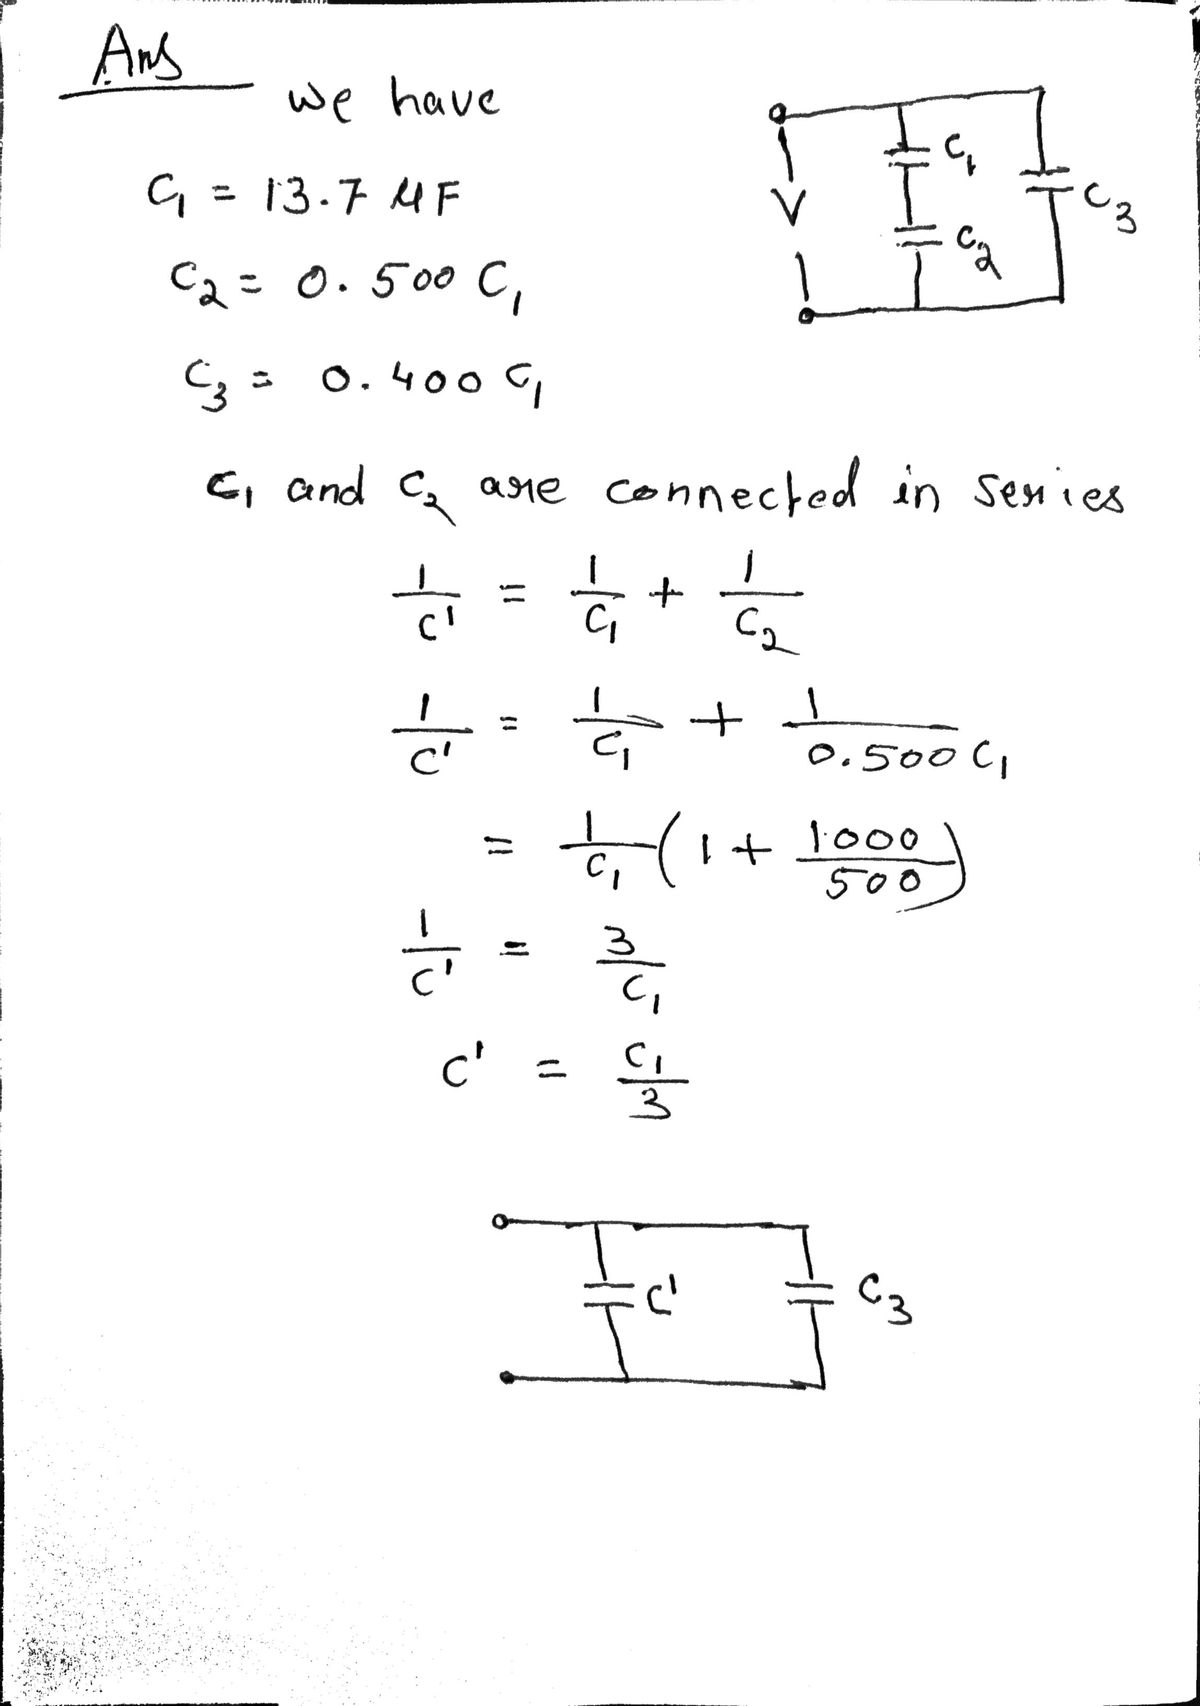 Ans
we have
C₁ = 13.7 μF
C₂ = 0.500 C₁
C₃ = 0.400 C₁
C₁
C₂
C₃
V
C₁ and C₂ are connected in series
1/C' = 1/C₁ + 1/C₂
1/C' = 1/C₁ + 1/0.500 C₁
= 1/C₁ (1 + 1000/500)
1/C' = 3/C₁
C' = C₁/3
C' C₃